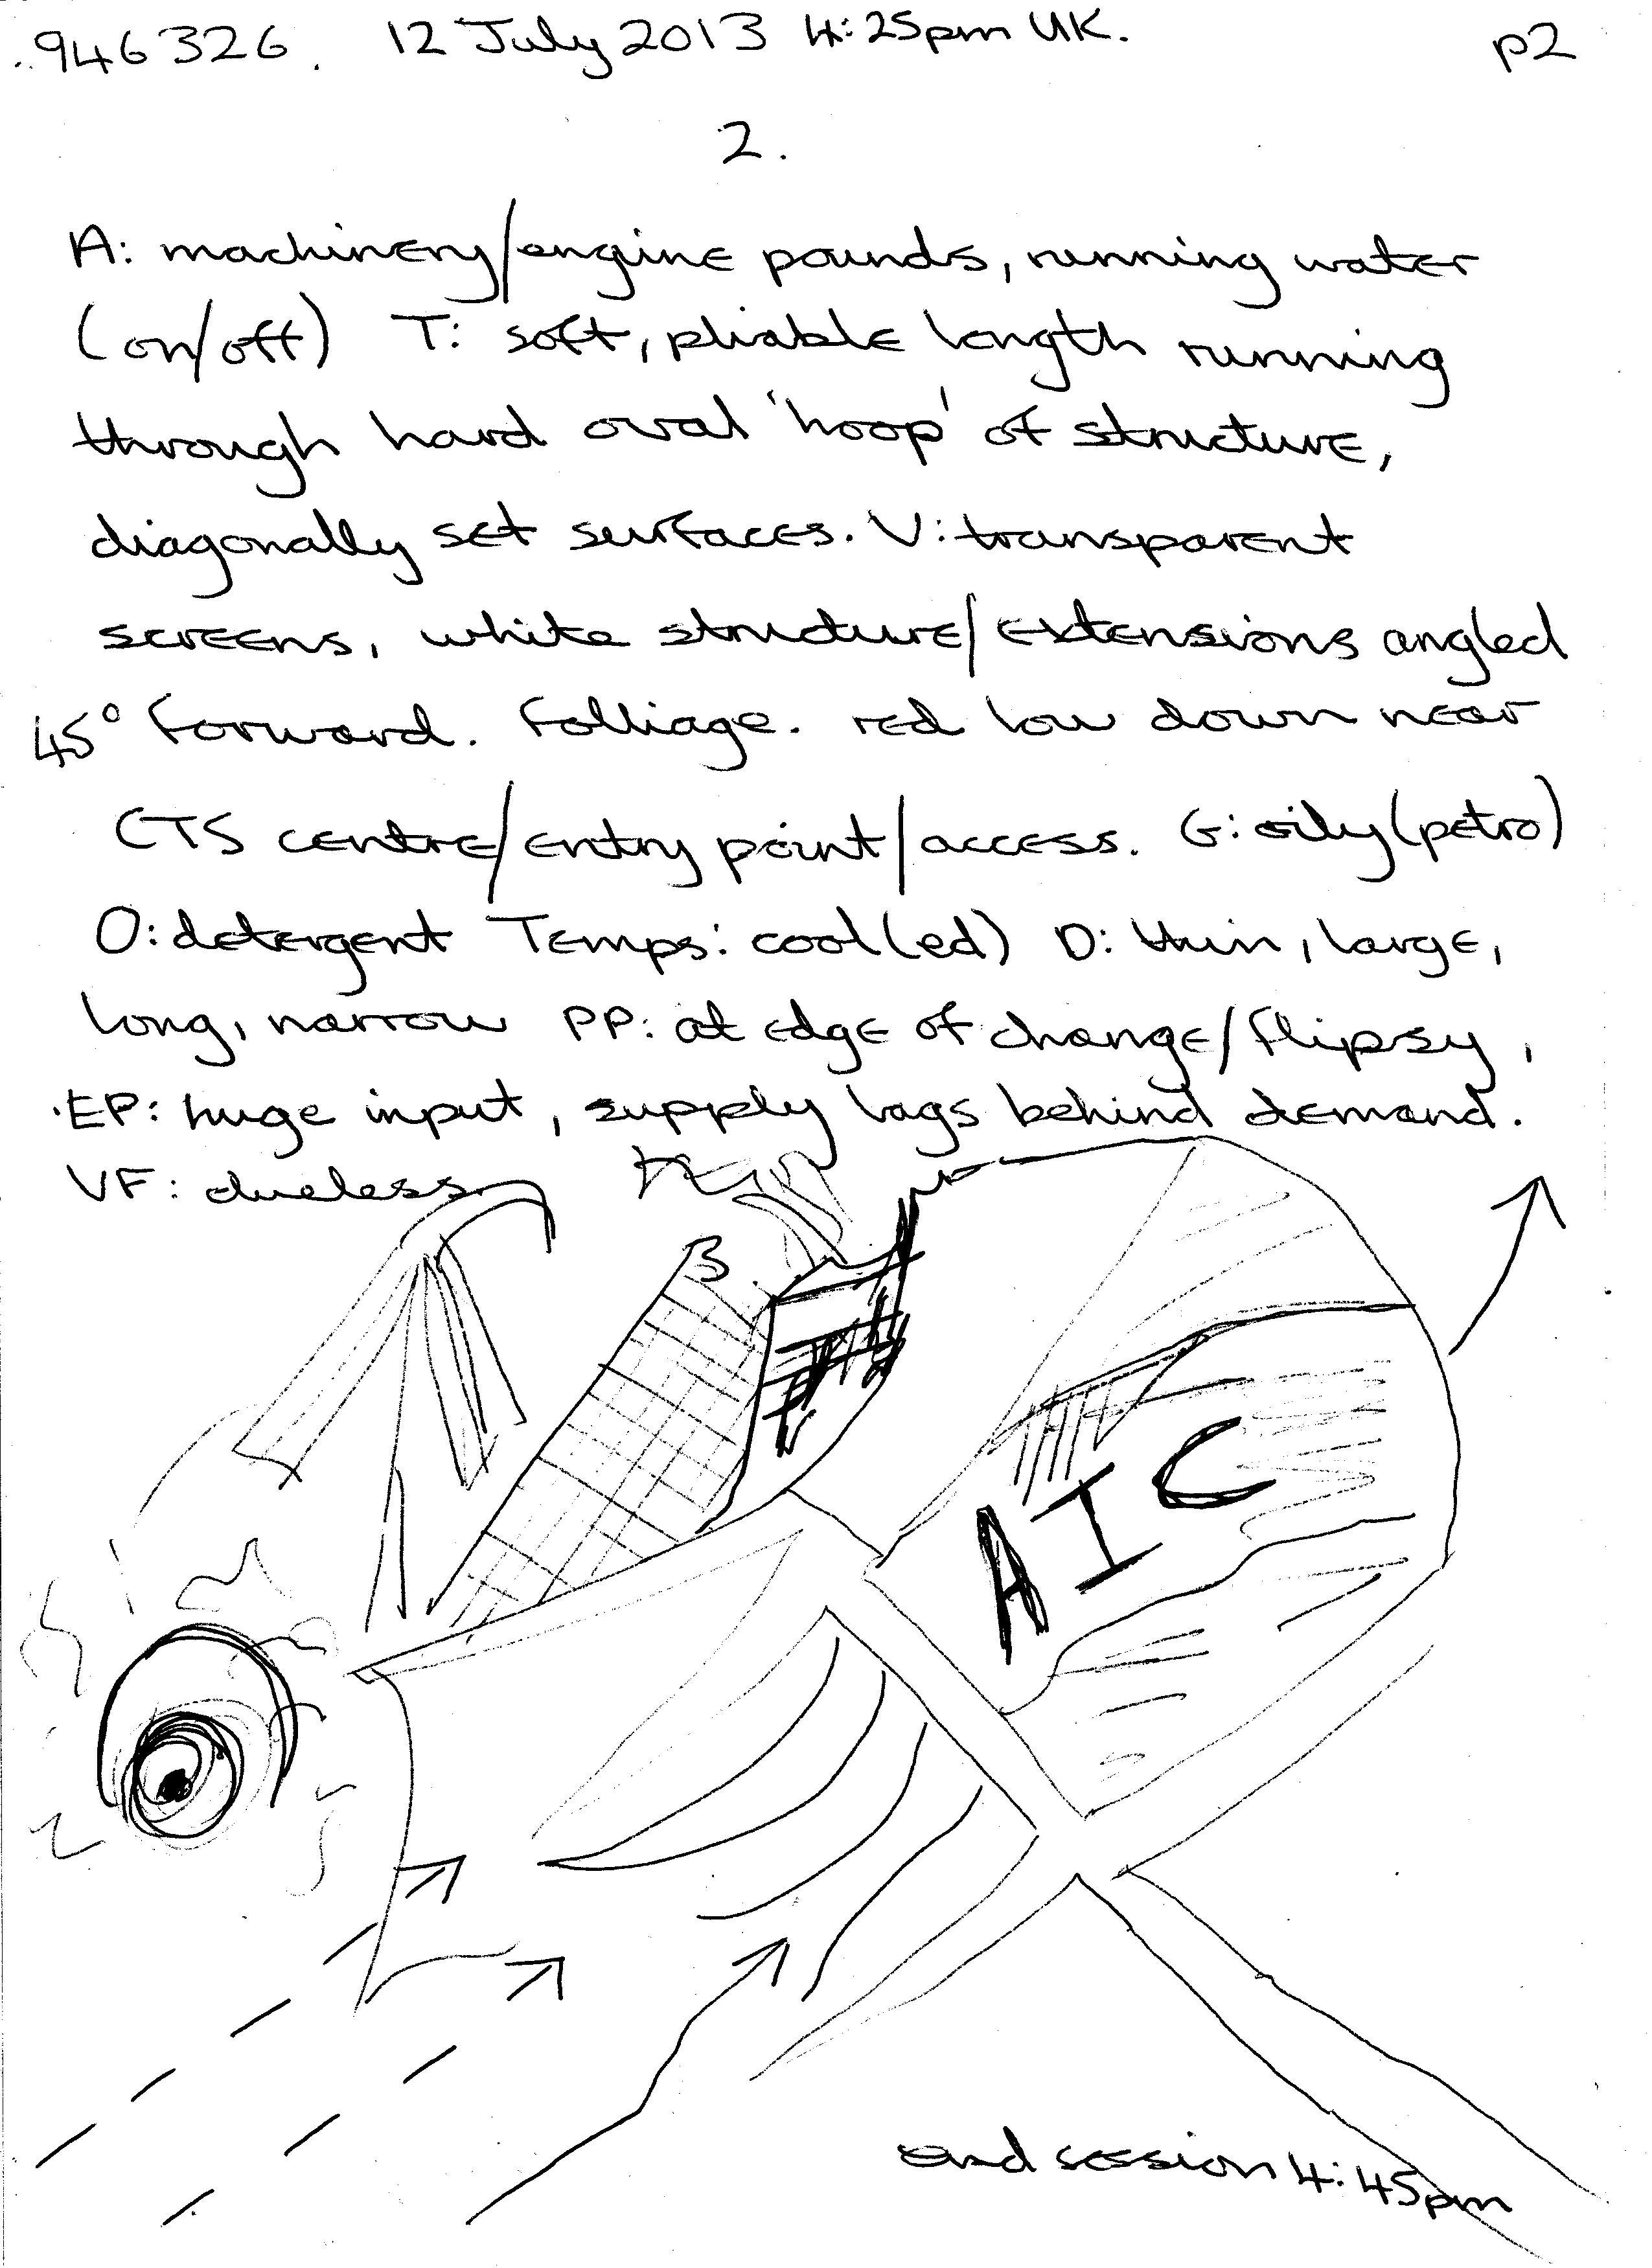 ..946326. 12 July 2013 4:25pm UK. p2
2.
A: machinery/engine pounds, running water
(on/off) T: soft, pliable length running
through hard oval 'hoop' of structure,
diagonally set surfaces. V: transparent
screens, white structure/extensions angled
45° forward. Folliage. red low down near
CTS centre/entry point/access. G: oily (petro)
O: detergent Temps: cool(ed) D: thin, large,
long, narrow PP: at edge of change/flipsy,
EP: huge input, supply lags behind demand.
VF: clueless
B
AIC
end session 4:45pm